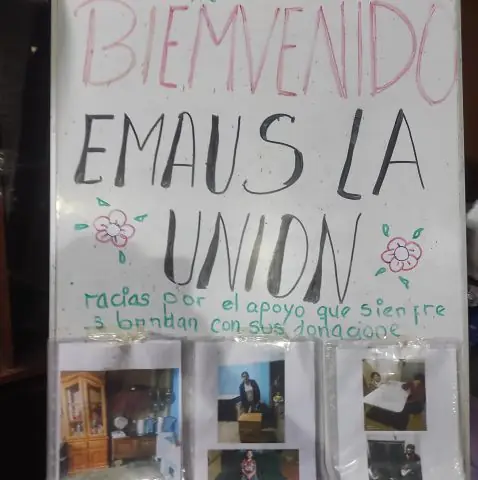 BIEMVENIDO
EMAUS LA
UNION
racias por el apoyo que sienpre
s brindan con sus donacione